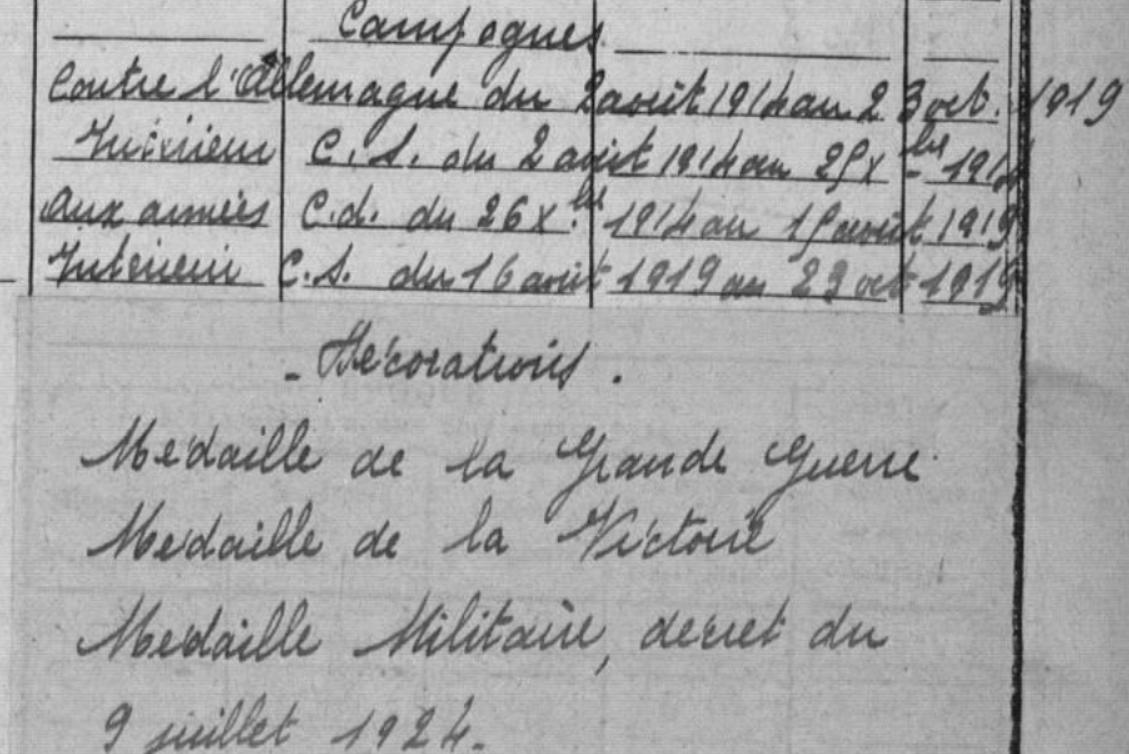 Campagnes
Contre l'Allemagne du 2 août 1914 au 23 oct. 1919
Intérieur C.S. du 2 août 1914 au 25 Xbre 1914
aux armées C.d. du 26 Xbre 1914 au 15 août 1919
Intérieur C.S. du 16 août 1919 au 23 oct 1919
- Décorations.
Médaille de la Grande Guerre
Médaille de la Victoire
Médaille Militaire, décret du
9 juillet 1924.